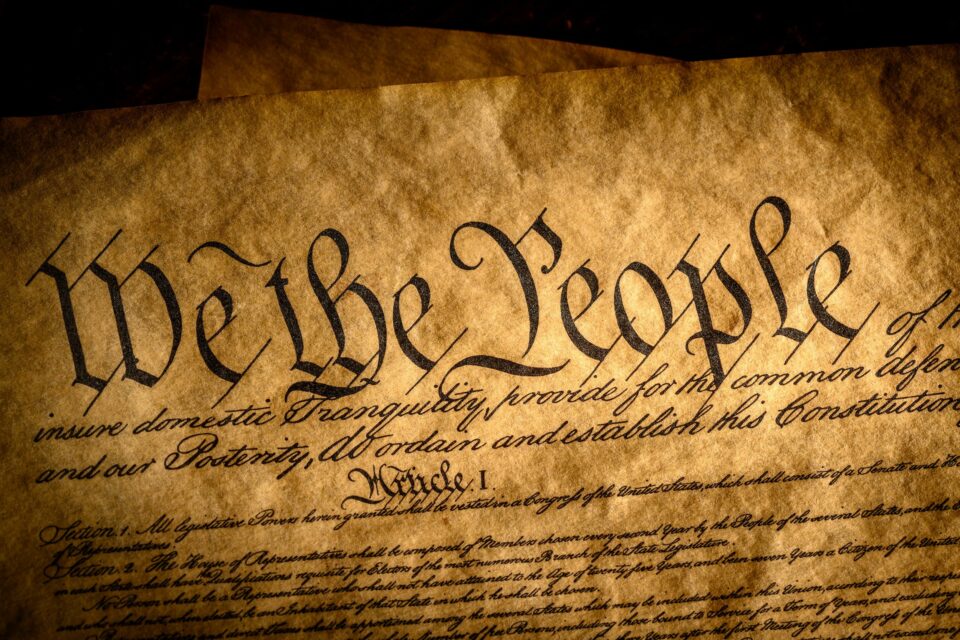 We the People of
insure domestic Tranquility, provide for the common defen
and our Posterity, do ordain and establish this Constitution
Article. I.
Section. 1. All legislative Powers herein granted shall be vested in a Congress of the United States, which shall consist of a Senate and Ho
of Representatives.
Section. 2. The House of Representatives shall be composed of Members chosen every second Year by the People of the several States, and the
in each State shall have the Qualifications requisite for Electors of the most numerous Branch of the State Legislature.
No Person shall be a Representative who shall not have attained to the Age of twenty five Years, and been seven Years a Citizen of the United
and who shall not, when elected, be an Inhabitant of that State in which he shall be chosen.
Representatives and direct Taxes shall be apportioned among the several States which may be included within this Union, according to their respec
Number of free Persons, including those bound to Service for a Term of Years, and excluding
Years after the first Meeting of the Congress of the United